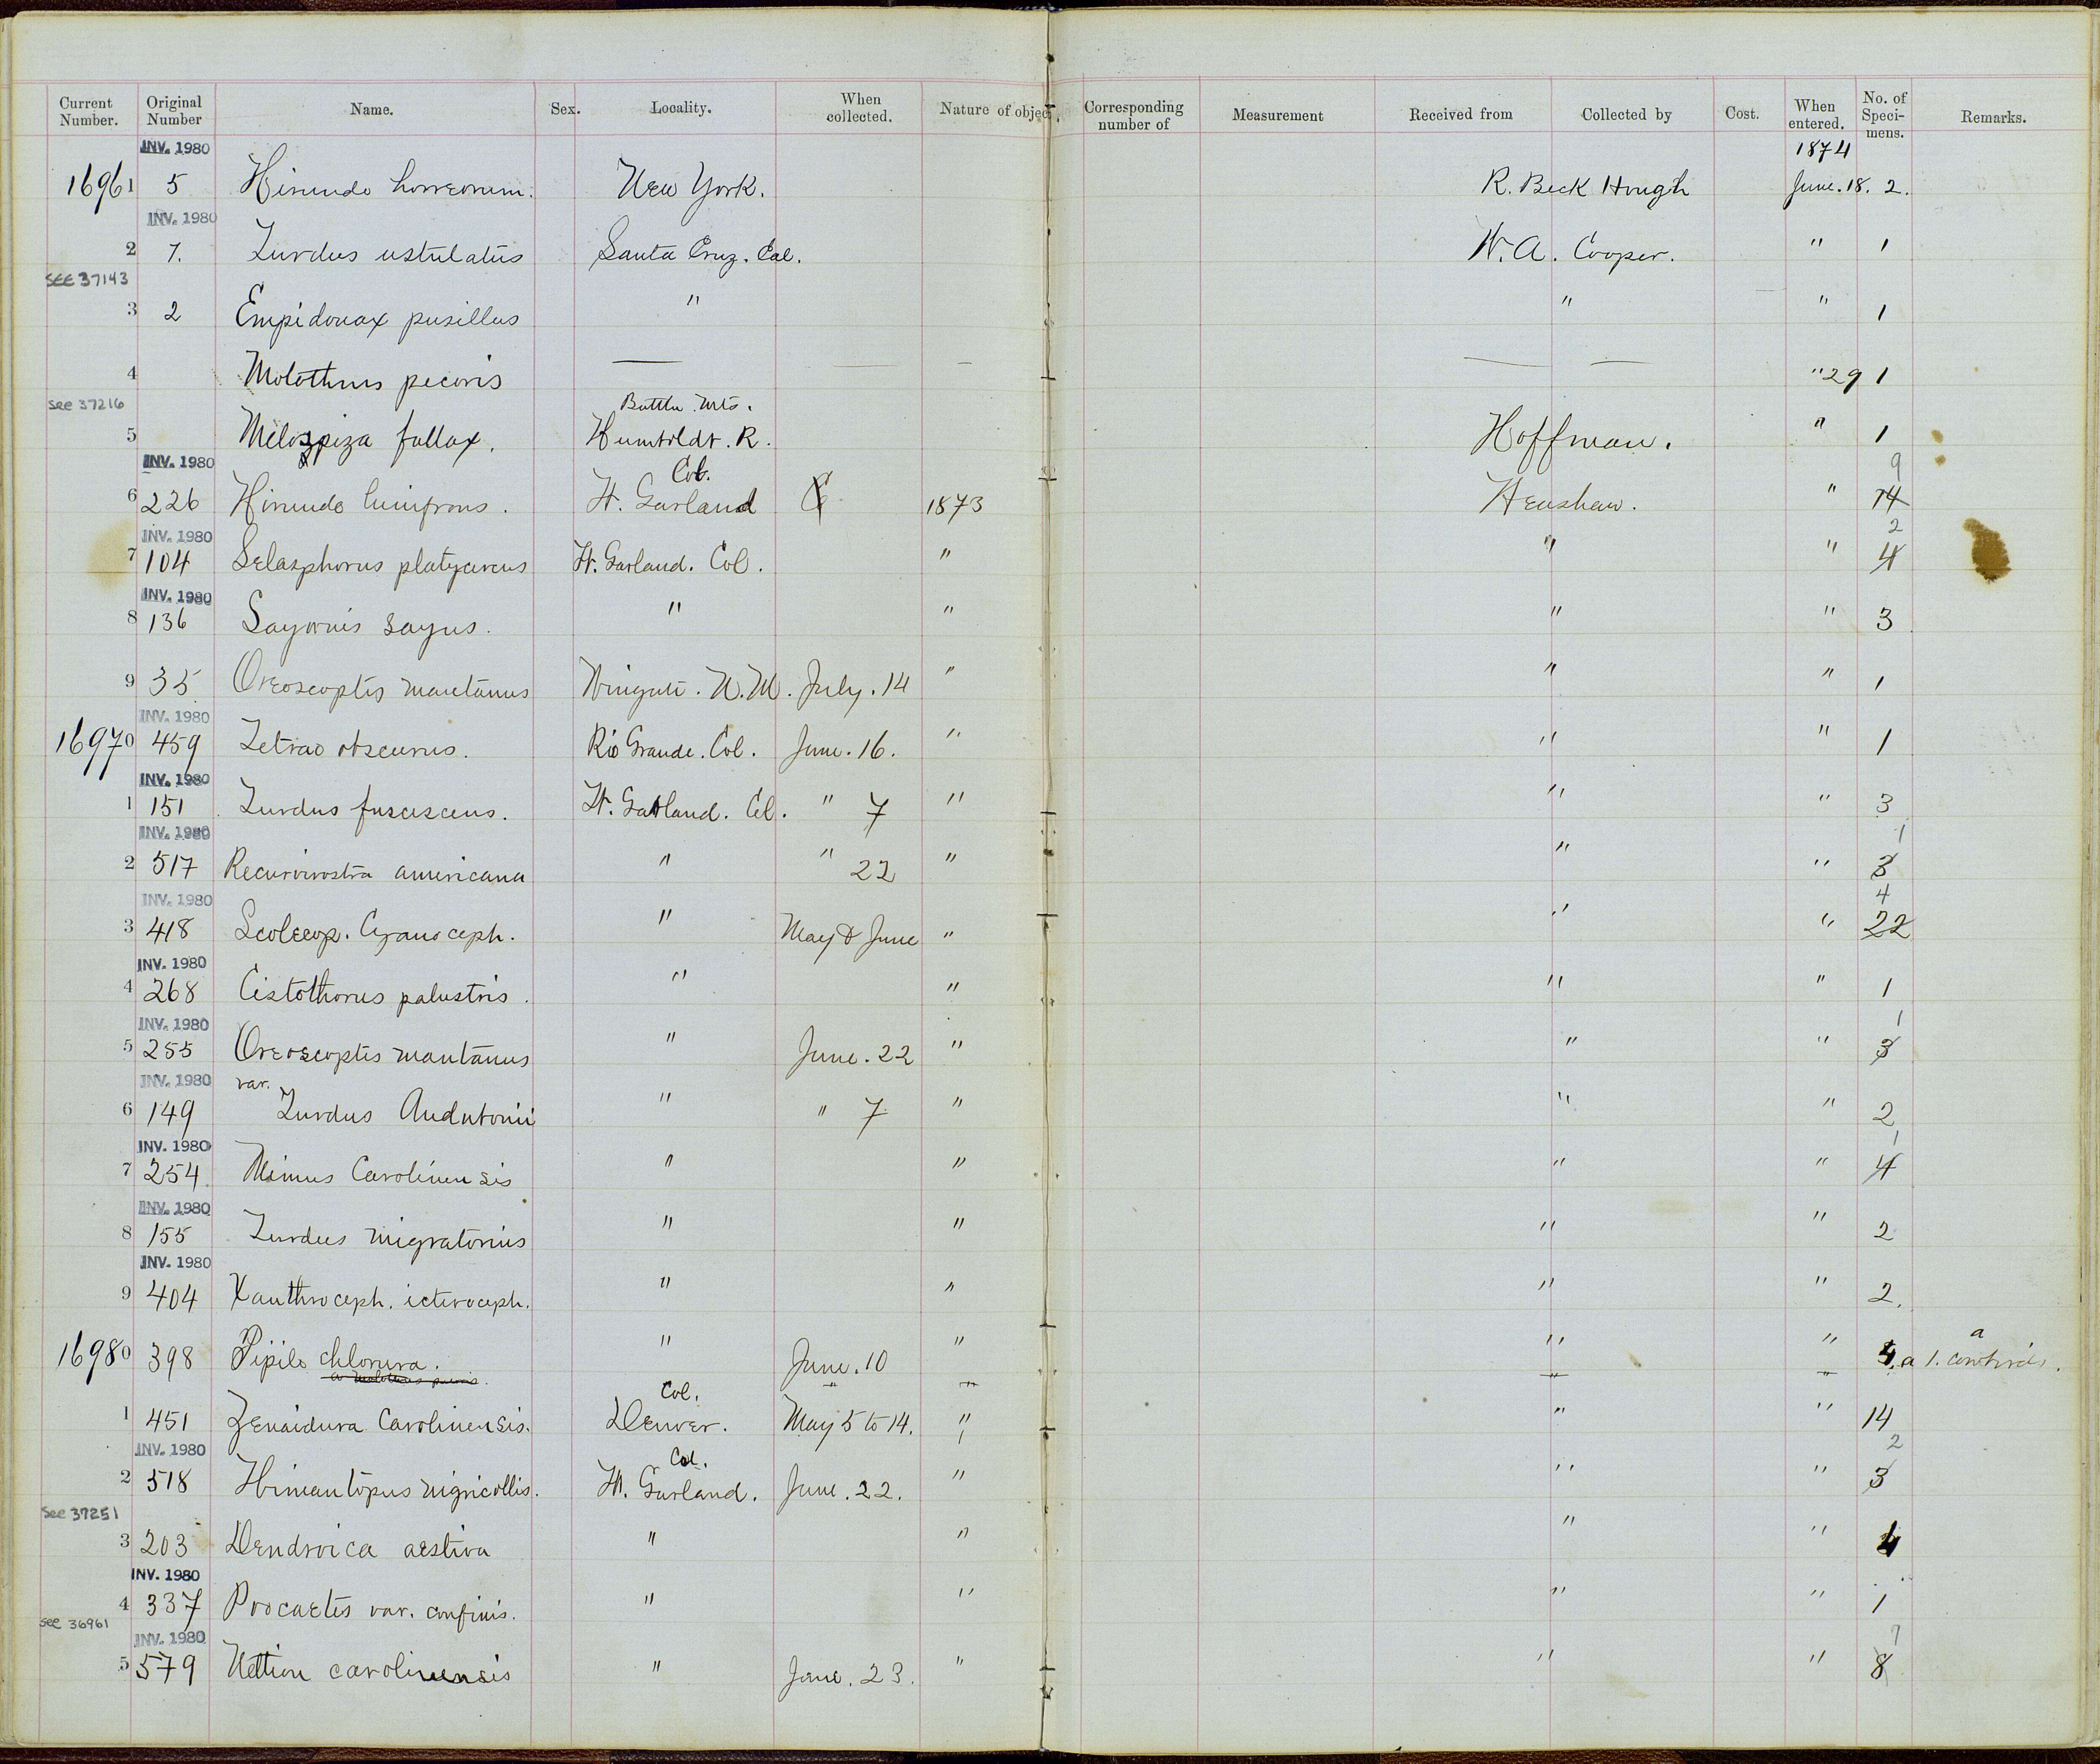 Current Number. Original Number Name. Sex. Locality. When collected. Nature of object. Corresponding number of Measurement Received from Collected by Cost. When entered. No. of Specimens. Remarks.
INV. 1980 1874
16961 5 Hirundo horreorum. New York. R. Beck Hough June. 18. 2.
INV. 1980
2 7. Turdus ustulatus Santa Cruz. Cal. W. A. Cooper. " 1
SEE 37143
3 2 Empidonax pusillus " " " 1
4 Molothrus pecoris — — — — — " 29 1
See 37216 Battle Mts.
5 Melospiza fallax. Humboldt. R. Hoffman. " 1
INV. 1980 Col. 9
6 226 Hirundo lunifrons. Ft. Garland 1873 Henshaw. " 14
INV. 1980 2
7 104 Selasphorus platycercus Ft. Garland. Col. " " " 4
INV. 1980
8 136 Sayornis sayus. " " " " 3
9 35 Oreoscoptes montanus Wingate. N.M. July. 14 " " " 1
INV. 1980
16970 459 Tetrao obscurus. Rio Grande. Col. June. 16. " " " 1
INV. 1980
1 151 Turdus fuscescens. Ft. Garland. Col. " 7 " " " 3
INV. 1980 1
2 517 Recurvirostra americana " " 22 " " " 3
INV. 1980 4
3 418 Scolecop. Cyanoceph. " May & June " " " 22
INV. 1980
4 268 Cistothorus palustris. " " " " 1
INV. 1980 1
5 255 Oreoscoptes montanus " June. 22 " " " 3
INV. 1980 var.
6 149 Turdus Audubonii " " 7 " " " 2
INV. 1980 1
7 254 Mimus Carolinensis " " " " 4
INV. 1980
8 155 Turdus migratorius " " " " 2
INV. 1980
9 404 Xanthroceph. icteroceph. " " " " 2.
16980 398 Pipilo chlorura. " June. 10 " " " a 1. cowbirds.
a Molothrus pecoris. " " " "
Col.
1 451 Zenaidura Carolinensis. Denver. May 5 to 14. " " " 14
INV. 1980 Col. 2
2 518 Himantopus nigricollis. Ft. Garland. June. 22. " " " 3
See 37251
3 203 Dendroica aestiva " " " "
INV. 1980
4 337 Poocaetes var. confinis. " " " " 1
see 36961 INV. 1980 7
5 579 Nettion carolinensis " June. 23. " " " 8